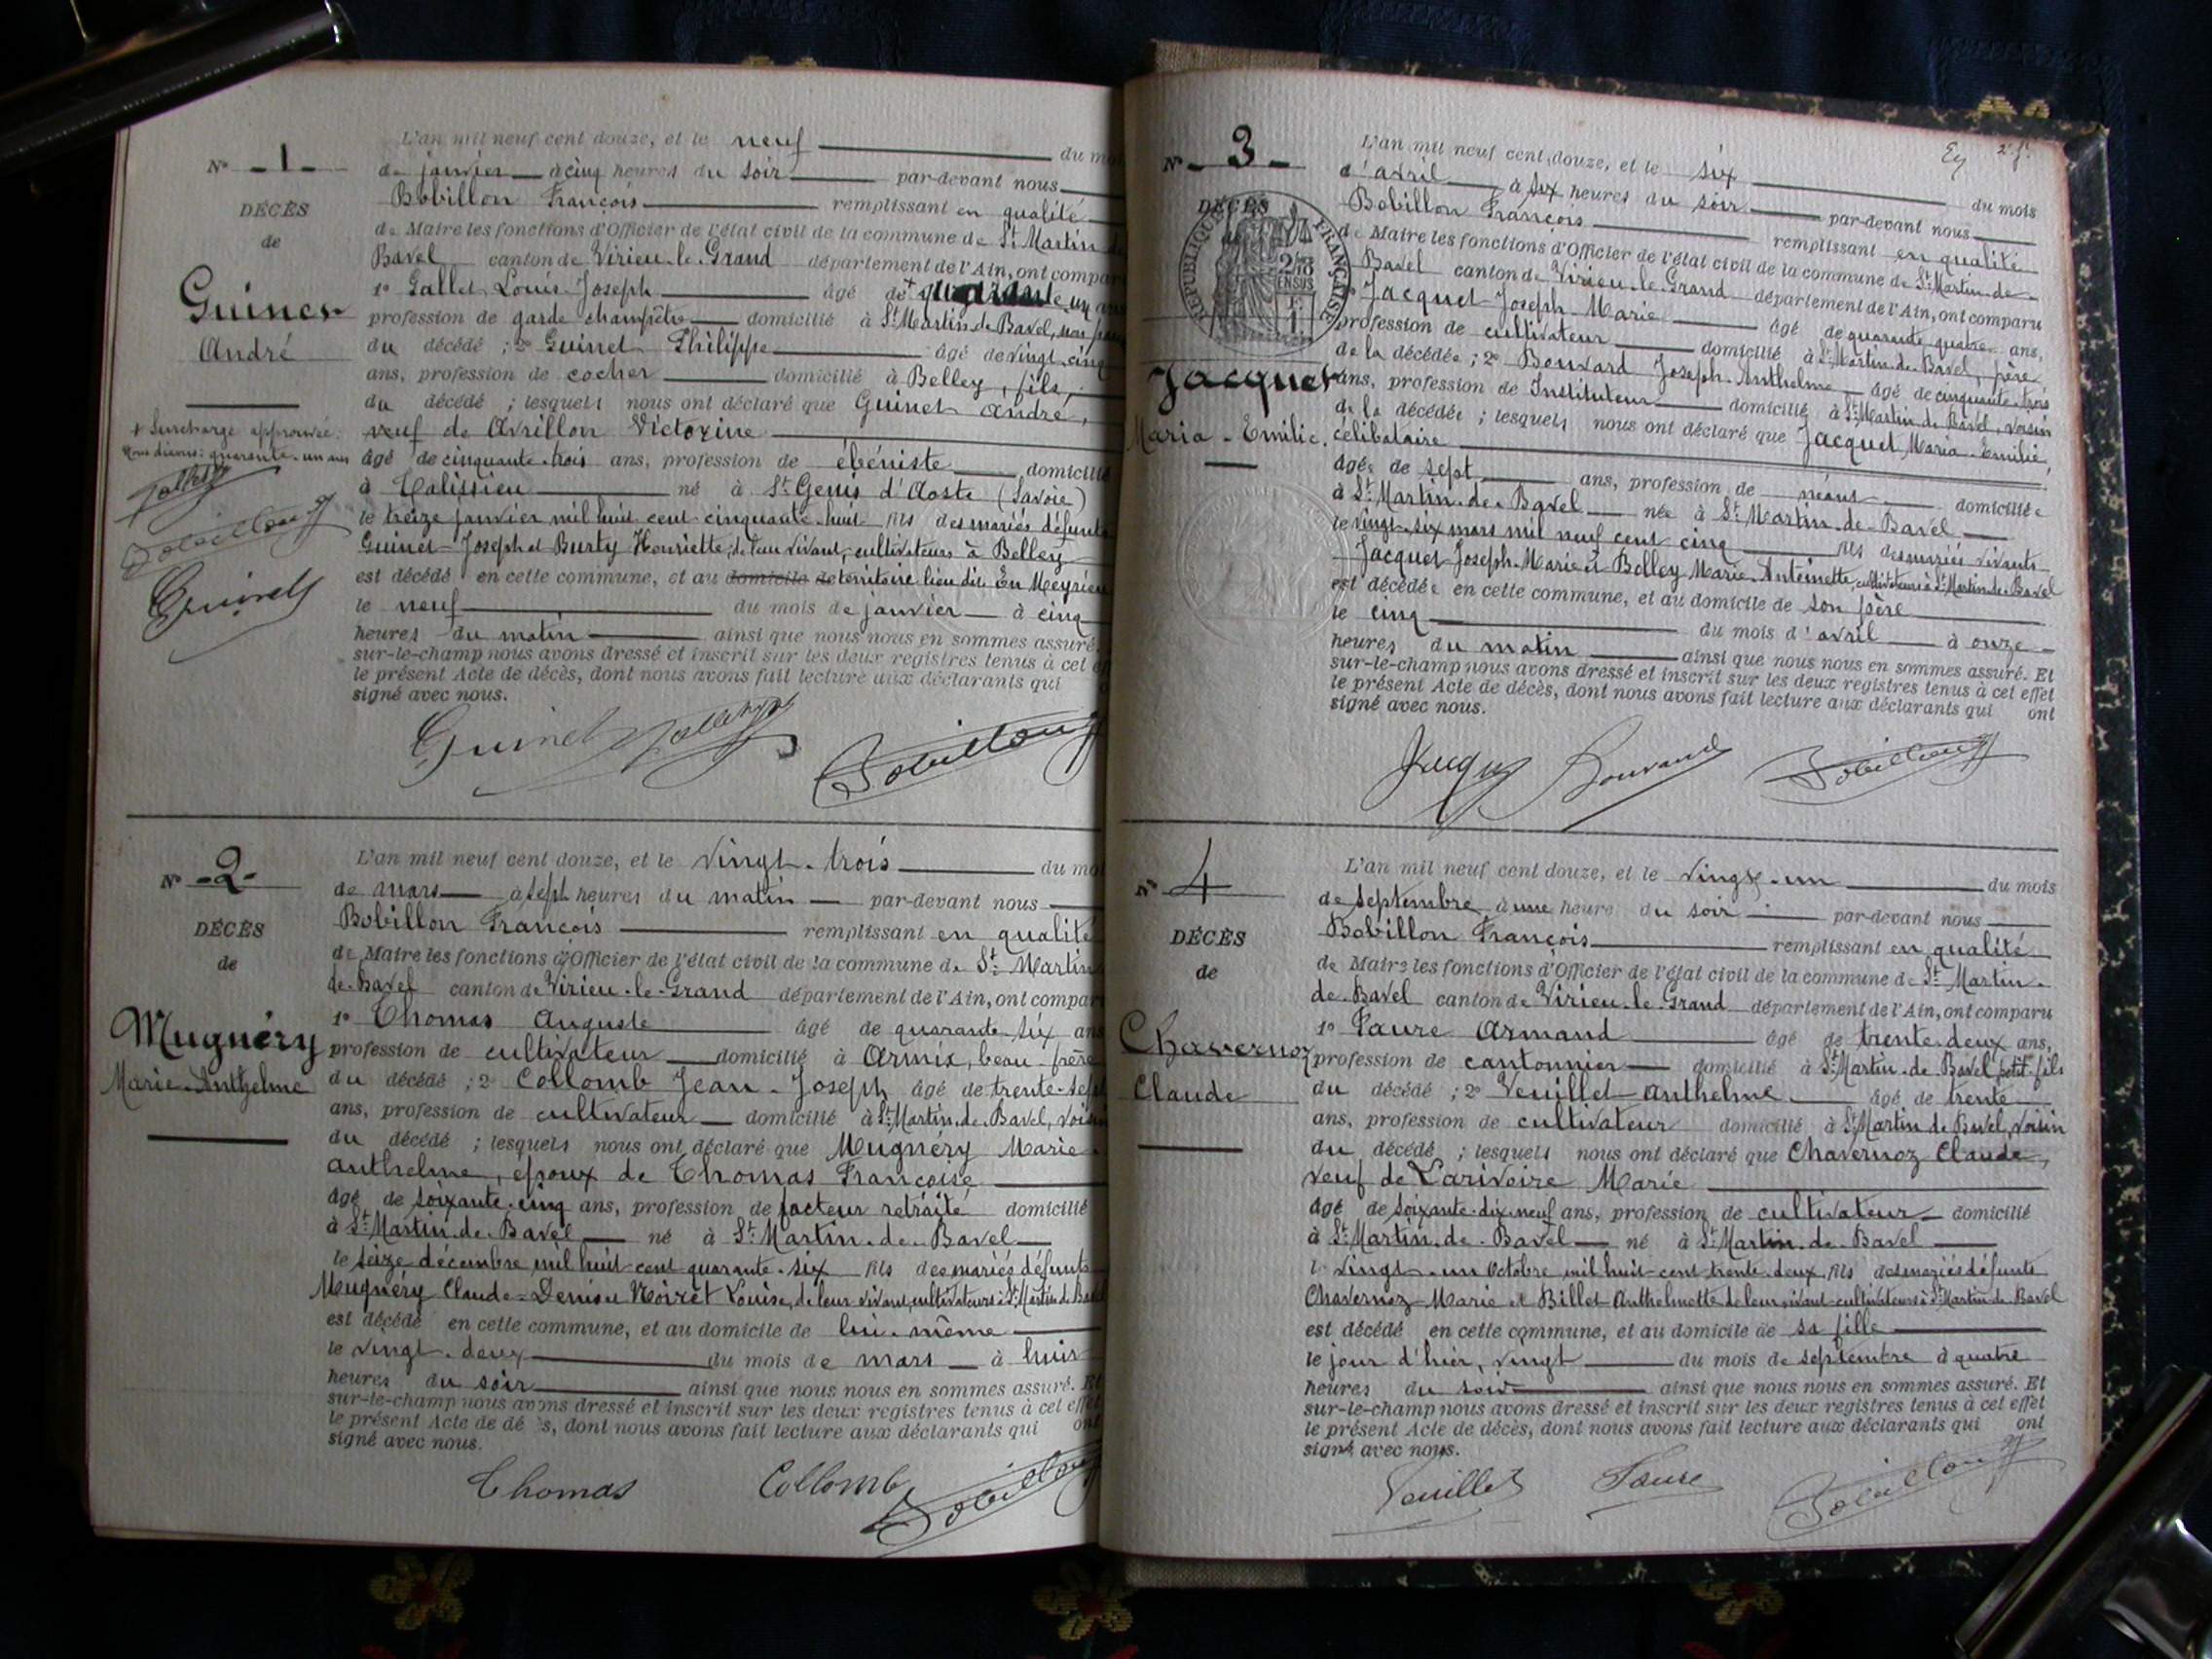 L'an mil neuf cent douze, et le neuf du
N° - 1 -
de janvier à cinq heures du soir par-devant nous
DÉCÈS
Bobillon François remplissant en qualité
de
de Maire les fonctions d'Officier de l'état civil de la commune de St Martin
Bavel canton de Virieu-le-Grand département de l'Ain, ont
Guinet
André
1° Gallet Louis Joseph âgé de + quarante un ans
profession de garde champêtre domicilié à St Martin de Bavel, non
du décédé ; 2° Guinet Philippe âgé de vingt-cinq
ans, profession de cocher domicilié à Belley, fils,
du décédé ; lesquels nous ont déclaré que Guinet André,
+ Surcharge approuvée.
Nous disons: quarante-un ans
Guinet
veuf de Avrillon Victorine
âgé de cinquante-trois ans, profession de ébéniste domicilié
à Talissieu né à St Genis d'Aoste (Savoie)
le treize janvier mil huit cent cinquante-huit fils des mariés défunts
Guinet Joseph et Burty Henriette, de leur vivant, cultivateurs à Belley
est décédé en cette commune, et au domicile de territoire lieu dit En Meyrieu
le neuf du mois de janvier à cinq
heures du matin ainsi que nous nous en sommes assuré.
sur-le-champ nous avons dressé et inscrit sur les deux registres tenus à cet
le présent Acte de décès, dont nous avons fait lecture aux déclarants qui
signé avec nous.
Guinet Gallet Bobillon
L'an mil neuf cent douze, et le vingt-trois du
N° - 2 -
de mars à sept heures du matin par-devant nous
DÉCÈS
Bobillon François remplissant en qualité
de
de Maire les fonctions d'Officier de l'état civil de la commune de St Martin
de-Bavel canton de Virieu-le-Grand département de l'Ain, ont
Mugnéry
Marie-Anthelme
1° Thomas Auguste âgé de quarante six ans
profession de cultivateur domicilié à Armix, beau-frère
du décédé ; 2° Collomb Jean-Joseph âgé de trente-sept
ans, profession de cultivateur domicilié à St Martin-de-Bavel, voisin
du décédé ; lesquels nous ont déclaré que Mugnéry Marie
Anthelme, époux de Thomas Françoise
âgé de soixante-cinq ans, profession de facteur retraité domicilié
à St Martin-de-Bavel né à St Martin-de-Bavel
le seize décembre mil huit cent quarante-six fils des mariés défunts
Mugnéry Claude-Denis et Noiret Louise, de leur vivant, cultivateurs à St Martin de Bavel
est décédé en cette commune, et au domicile de lui-même
le vingt-deux du mois de mars à huit
heures du soir ainsi que nous nous en sommes assuré. Et
sur-le-champ nous avons dressé et inscrit sur les deux registres tenus à cet effet
le présent Acte de dé s, dont nous avons fait lecture aux déclarants qui ont
signé avec nous.
Thomas Collomb Bobillon
2e f.
L'an mil neuf cent douze, et le six du mois
N° - 3 -
d'avril à six heures du soir par-devant nous
DÉCÈS
Bobillon François remplissant en qualité
RÉPUBLIQUE FRANÇAISE
de Maire les fonctions d'Officier de l'état civil de la commune de St Martin-de-
Bavel canton de Virieu-le-Grand département de l'Ain, ont comparu
Jacquet Joseph Marie âgé de quarante quatre ans,
profession de cultivateur domicilié à St Martin-de-Bavel, père
de la décédée ; 2° Bouvard Joseph-Anthelme âgé de cinquante-trois
Jacquet
Maria-Emilie
ans, profession de Instituteur domicilié à St Martin-de-Bavel, voisin
de la décédée ; lesquels nous ont déclaré que Jacquet Maria-Emilie,
célibataire
âgée de sept ans, profession de néant domiciliée
à St Martin-de-Bavel née à St Martin-de-Bavel
le vingt-six mars mil neuf cent cinq fils des mariés vivants
Jacquet Joseph-Marie et Bolley Marie-Antoinette, cultivateurs à St Martin-de-Bavel
est décédée en cette commune, et au domicile de son père
le cinq du mois d'avril à onze
heures du matin ainsi que nous nous en sommes assuré. Et
sur-le-champ nous avons dressé et inscrit sur les deux registres tenus à cet effet
le présent Acte de décès, dont nous avons fait lecture aux déclarants qui ont
signé avec nous.
Jacquet Bouvard Bobillon
L'an mil neuf cent douze, et le vingt-un du mois
N° 4
de septembre à une heure du soir par-devant nous
DÉCÈS
Bobillon François remplissant en qualité
de
de Maire les fonctions d'Officier de l'état civil de la commune de St Martin-
de-Bavel canton de Virieu-le-Grand département de l'Ain, ont comparu
Chavernoz
Claude
1° Faure Armand âgé de trente-deux ans,
profession de cantonnier domicilié à St Martin-de-Bavel petit-fils
du décédé ; 2° Veuillet Anthelme âgé de trente
ans, profession de cultivateur domicilié à St Martin de Bavel, voisin
du décédé ; lesquels nous ont déclaré que Chavernoz Claude,
veuf de Larivoire Marie
âgé de soixante-dix-neuf ans, profession de cultivateur domicilié
à St Martin-de-Bavel né à St Martin-de-Bavel
le vingt-un Octobre mil huit-cent trente-deux fils des mariés défunts
Chavernoz Marie et Billet Anthelmette de leur vivant cultivateurs à St Martin de Bavel
est décédé en cette commune, et au domicile de sa fille
le jour d'hier, vingt du mois de septembre à quatre
heures du soir ainsi que nous nous en sommes assuré. Et
sur-le-champ nous avons dressé et inscrit sur les deux registres tenus à cet effet
le présent Acte de décès, dont nous avons fait lecture aux déclarants qui ont
signé avec nous.
Veuillet Faure Bobillon